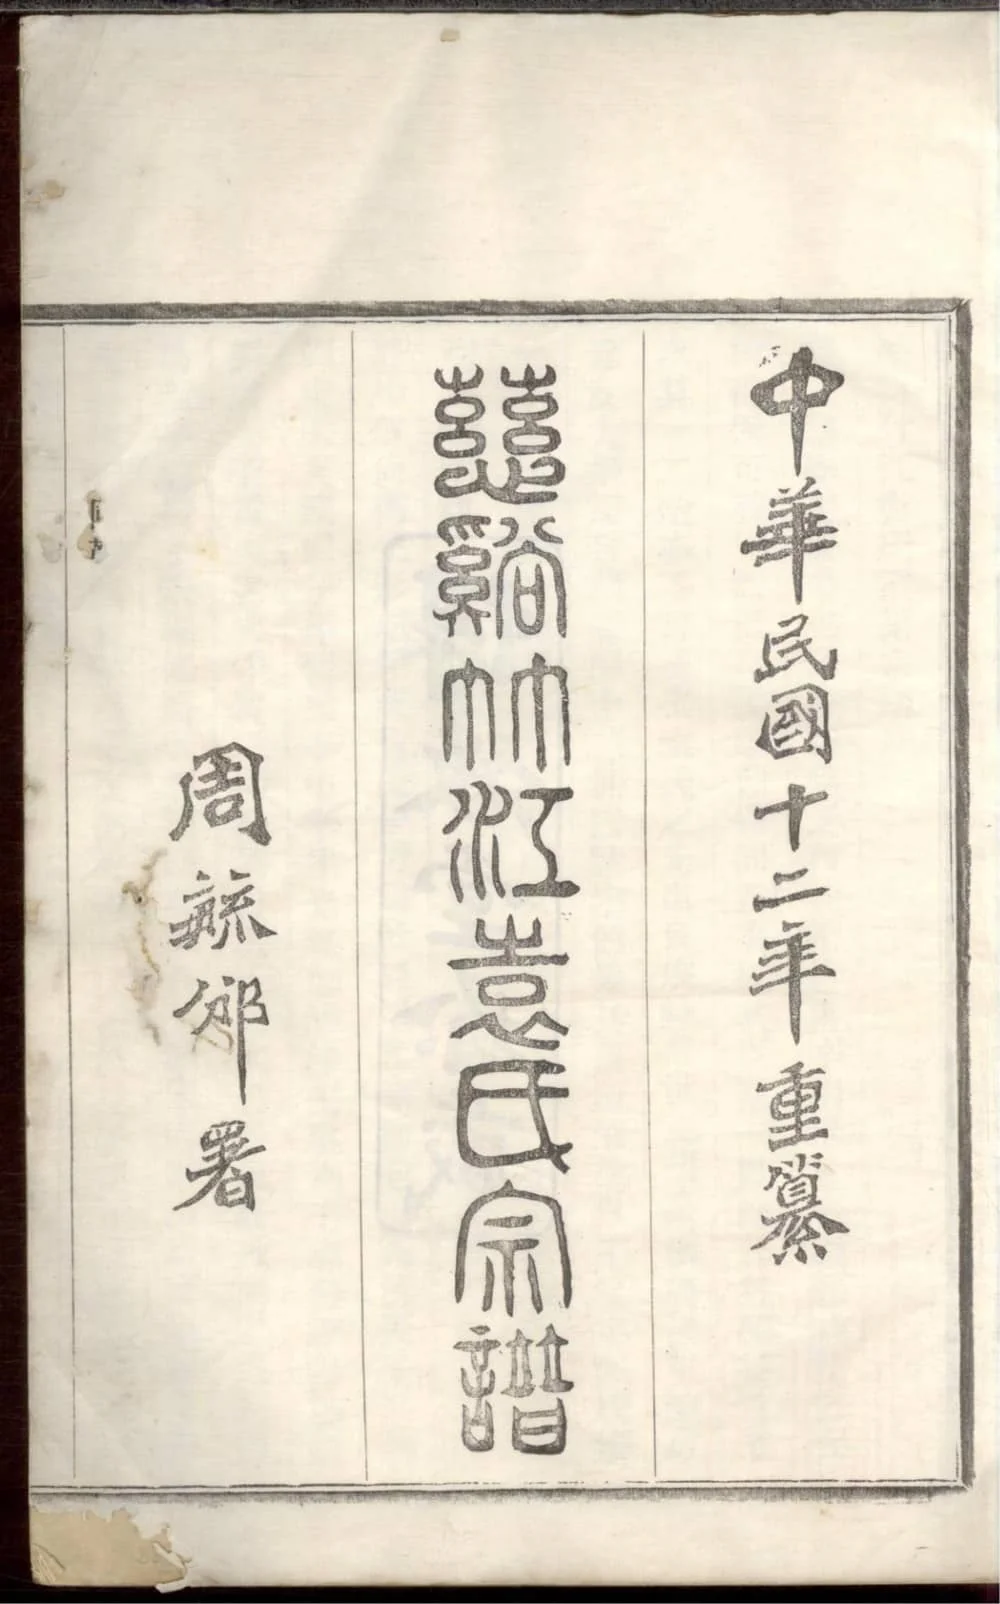 中華民國十二年重纂
慈谿竹江袁氏宗譜
周毓邠署